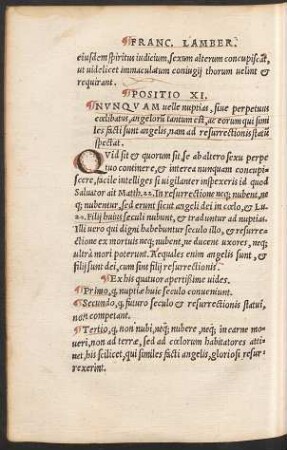 ¶FRANC. LAMBER.
eiusdem spiritus iudicium, sexum alterum concupiscāt,
ut uidelicet immaculatum coniugij thorum uelint &
requirant.
¶POSITIO XI.
¶NVNQVAM uelle nuptias, siue perpetuus
cœlibatus, angelorū tantum est, ac eorum qui simi
les facti sunt angelis, nam ad resurrectionis statū
spectat.
QVid sit & quorum sit, se ab altero sexu perpe
tuo continere, & interea nunquam concupi-
scere, facile intelliges si uigilanter inspexeris id quod
Saluator ait Matth. 22. In resurrectione neq; nubent, ne
q; nubentur, sed erunt sicut angeli dei in cœlo, & Lu-
20. Filij huius seculi nubunt, & traduntur ad nuptias.
Illi uero qui digni habebuntur seculo illo, & resurre-
ctione ex mortuis neq; nubent, ne ducent uxores, neq;
ultrà mori poterunt. Æquales enim angelis sunt, &
filij sunt dei, cum sint filij resurrectionis.
¶Ex his quatuor apertißime uides.
¶Primo, q, nuptiæ huic seculo conueniunt.
¶Secundo, q, futuro seculo & resurrectionis statui,
non competant.
¶Tertio, q, non nubi, neq; nubere, neq; in carne mo-
ueri, non ad terræ, sed ad cœlorum habitatores atti-
net, his scilicet, qui similes facti angelis, gloriosi resur
rexerint.